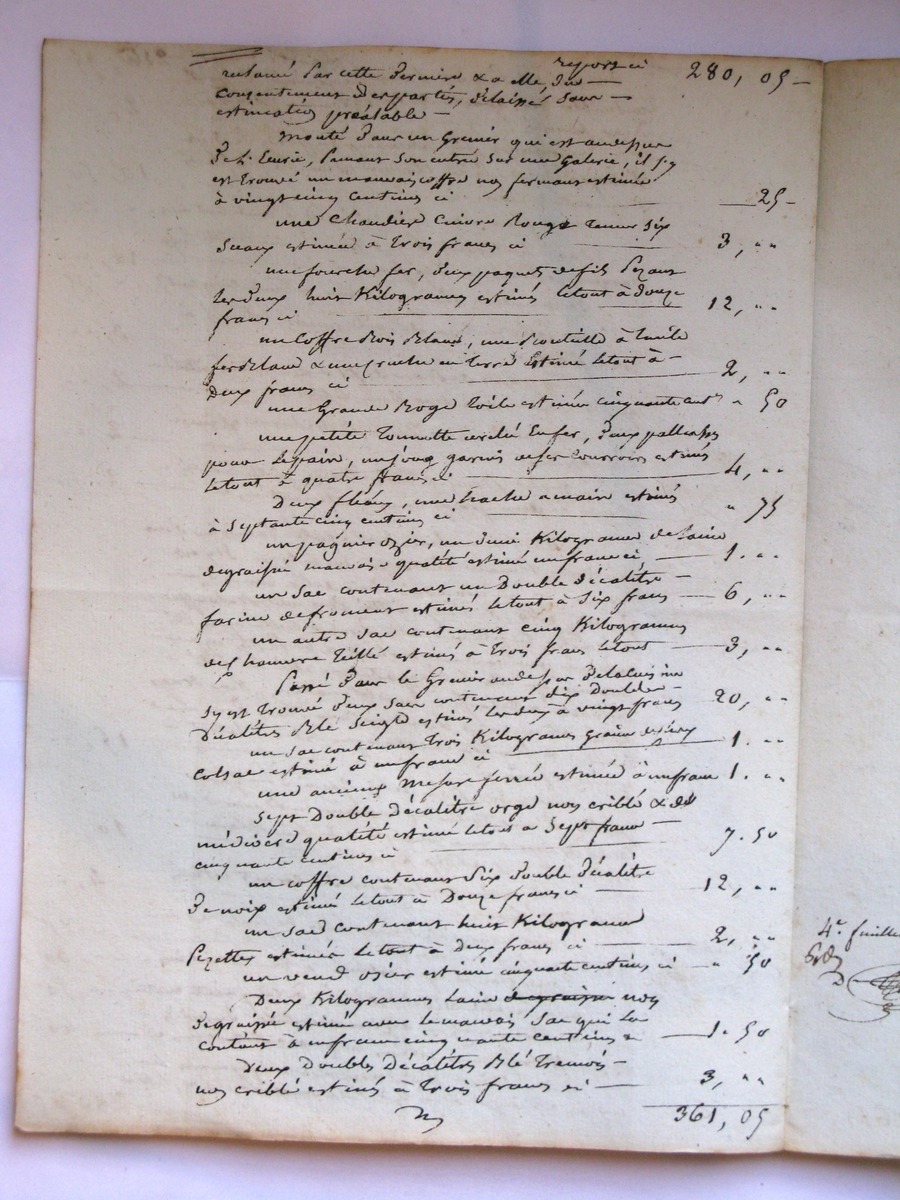 report ci 280, 05 -
reclamé par cette derniere & a elle du
consentement des parties, délaissé sans
estimation préalable
monté dans un Grenier qui est audessus
de L'Ecurie, prenant son entrée sur une Galerie, il s'y
est trouvé un mauvais coffre non fermant estimé
à vingt cinq centimes ci 25 -
une Chaudiere Cuivre Rouge tenue six
seaux estimée à trois francs ci 3, " "
une fourche fer, deux paquets de fil pezant
les deux huit Kilogrames estimés le tout à douze
francs ci 12, " "
un Coffre Bois Blanc, une Bouteille à huile
fer Blanc & une cruche en terre Estimé le tout à
deux francs ci 2, " "
une Grande Toile estimée cinquante cent.s " 50
une petite cerclé En fer, deux
pour le pain, un joug garnis de ses Courroies estimés
le tout à quatre francs ci 4, " "
Deux fléaux, une hache a main estimés
à Septante cinq centimes ci " 75
un pagnier ozier, un demi Kilograme de laine
degraissé mauvaise qualité estimé un franc ci 1. " "
un sac contenant un Double décalitre
farine de froment estimés le tout à six francs 6, " "
un autre sac contenant cinq Kilogrames
de chanvre teillé estimés à trois francs le tout 3, " "
Passé dans le Grenier audessus de la cuisine
s'y est trouvé deux sacs contenant dix Doubles
Décalitres Blé Seigle estimés les deux à vingt francs 20, " "
un sac contenant trois Kilogrames graine de
Colsac estimé à un franc ci 1. " "
une ancienne Mesure ferrée estimée à un franc 1. " "
sept Double Décalitre orge non criblé & de
médiocre qualité estimé le tout a Sept francs
cinquante centimes ci 7. 50
un coffre contenant Six Double Décalitre
de noix estimé le tout à Douze francs ci 12, " "
un sac contenant huit Kilograme
Pezettes estimées le tout à deux francs ci 2, " "
un osier estimé cinquante centimes ci " 50
Deux Kilogrammes Laine degraissée non
Degraissée estimé avec le mauvais Sac qui la
contient à un franc cinquante centimes 1. 50
Deux Doubles Décalitres Blé Tremois
non criblé estimés à Trois francs ci 3, " "
361, 05
4.e feuille